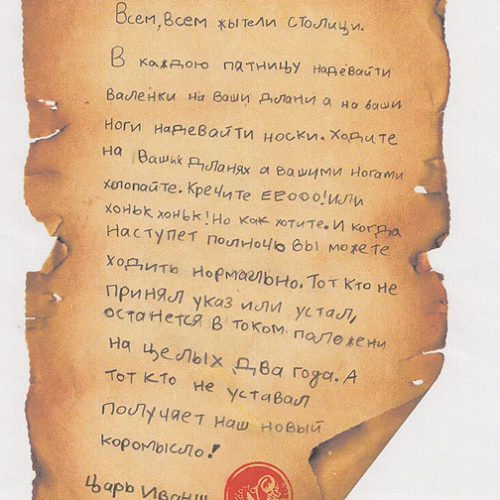 Всем, всем жытели столици.
В каждою патницу надевайти
валенки на ваши длани а на ваши
ноги надевайти носки. Ходите
на Ваших дланях а вашими ногами
холопайте. Кречите ЕЕООО! или
хоньк хоньк! Но как хотите. И когда
наступет полночь вы можете
ходить нормально. Тот кто не
принял указ или устал,
останется в таком паложени
на целых два года. А
тот кто не уставал
получает наш новый
коромысло!
Царь Иванш